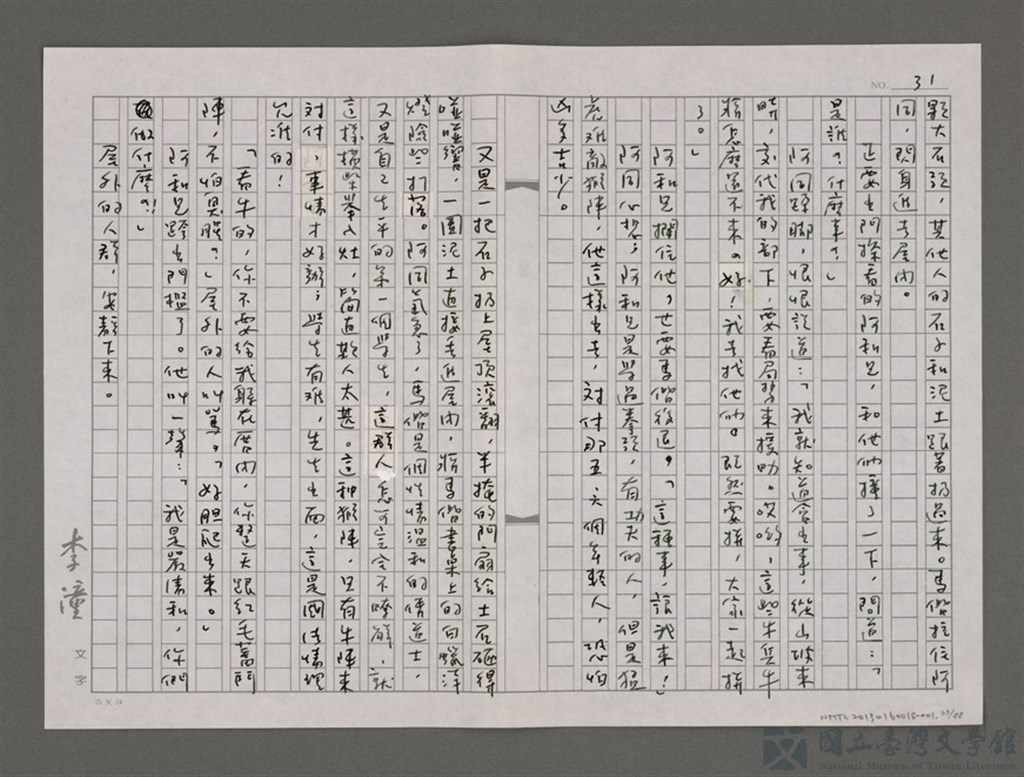 NO. 31
顆大石頭,其他人的石子和泥土跟著扔過來。馬偕拉住阿
同,閃身進去屋內。
正要出門探看的阿和兄,和他們撞了一下,問道:「
是誰?什麼事?」
阿同跺腳,恨恨說道:「我就知道會出事,從山坡來
時,交代我的部下,要看局勢來援助。哎喲,這些牛兵牛
將怎麼還不來。好!我去找他們。既然要拼,大家一起拼
了。」
阿和兄攔住他,也要馬偕後退,「這種事,讓我來!」
阿同心想,阿和兄是學過拳頭,有功夫的人,但是猛
虎難敵猴陣,他這樣出去,對付那五、六個年輕人,恐怕
凶多吉少。
又是一把石子扔上屋頂滾翻,半掩的門扇給土石砸得
碰碰響,一團泥土直接丟進屋內,將馬偕書桌上的白蠟洋
燈險些打落。阿同氣急了,馬偕是個性情溫和的傳道士,
又是自己生平的第一個學生,這群人怎可言全不瞭解,就
這樣橫柴舉入灶,簡直欺人太甚。這種猴陣,只有牛陣來
對付,事情才好辦;學生有難,先生出面,這是國法情理
允准的!
「看牛的,你不要給我躲在厝內,你整天跟紅毛蕃鬥
陣,不怕臭臊?」屋外的人叫罵。「好膽爬出來。」
阿和兄跨出門檻了。他叫一聲:「我是嚴清和,你們
做什麼?!」
屋外的人群,安靜下來。
李潼
文字
25 X 24
NMTL20130160015-001.33/88
國立臺灣文學館
National Museum of Taiwan Literature